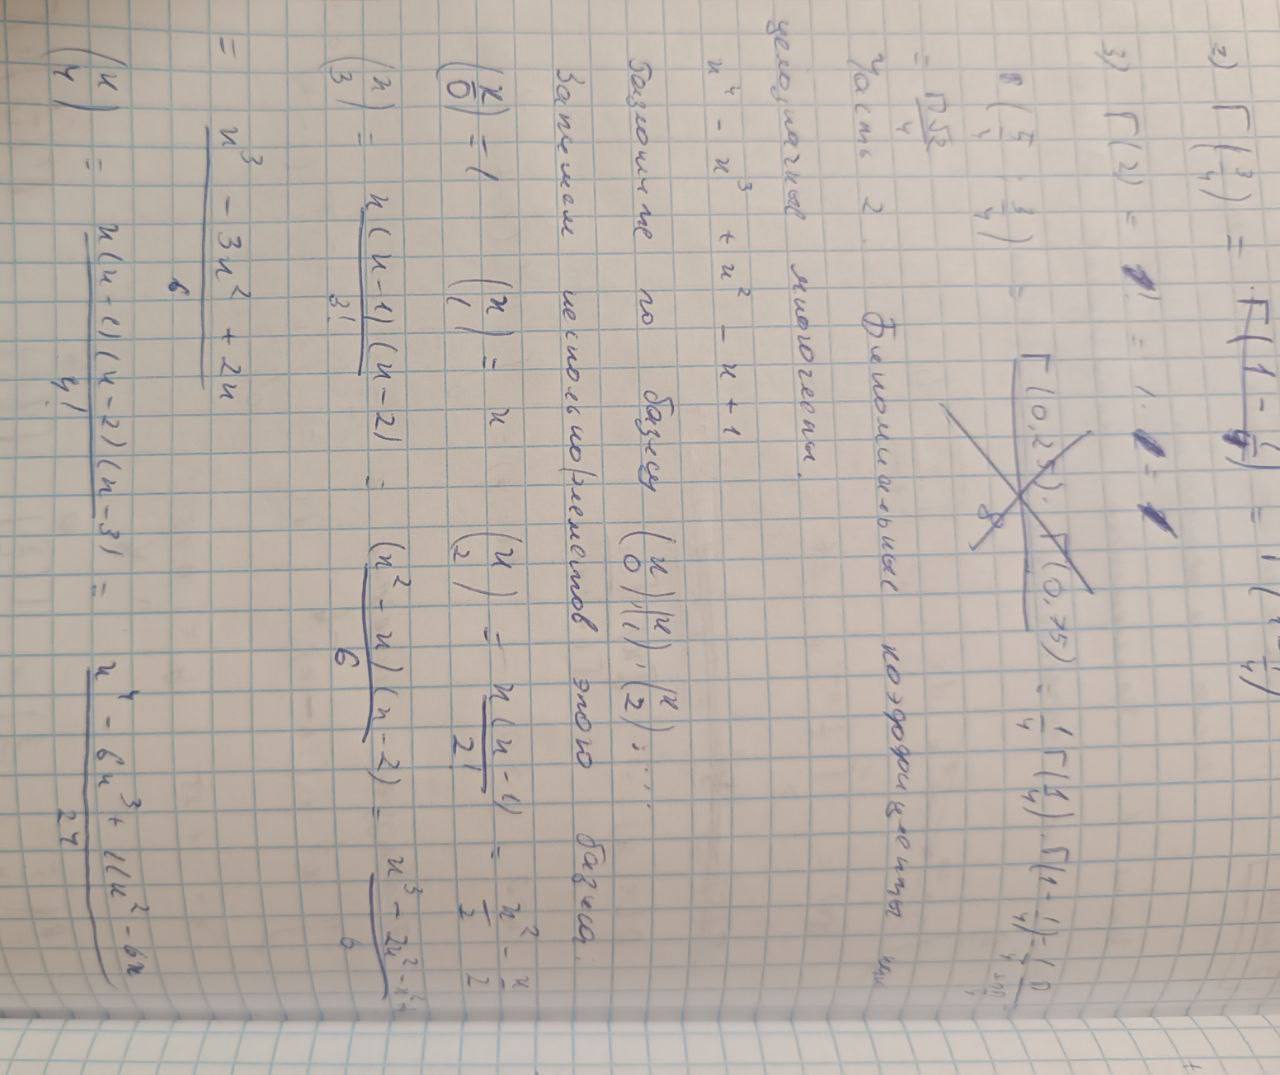 2) Γ(3/4) = Γ(1 - 1/4) =
3) Γ(2) = 1! = 1.
B(5/4; 3/4) = Γ(0,25)·Γ(0,75) = 1/4 Γ(1/4)·Γ(1-1/4) =
= π√2/4
Часть 2. Биномиальные коэффициенты и
целозначные многочлены.
x⁴ - x³ + x² - x + 1
Разложите по базису (x 0), (x 1), (x 2), ...
Запишем несколько элементов этого базиса.
(x 0) = 1 (x 1) = x (x 2) = x(x-1)/2! = x²/2 - x/2
(x 3) = x(x-1)(x-2)/3! = (x²-x)(x-2)/6 = x³-2x²-x²+/6
= x³ - 3x² + 2x/6
(x 4) = x(x-1)(x-2)(x-3)/4! = x⁴ - 6x³ + 11x² - 6x/24